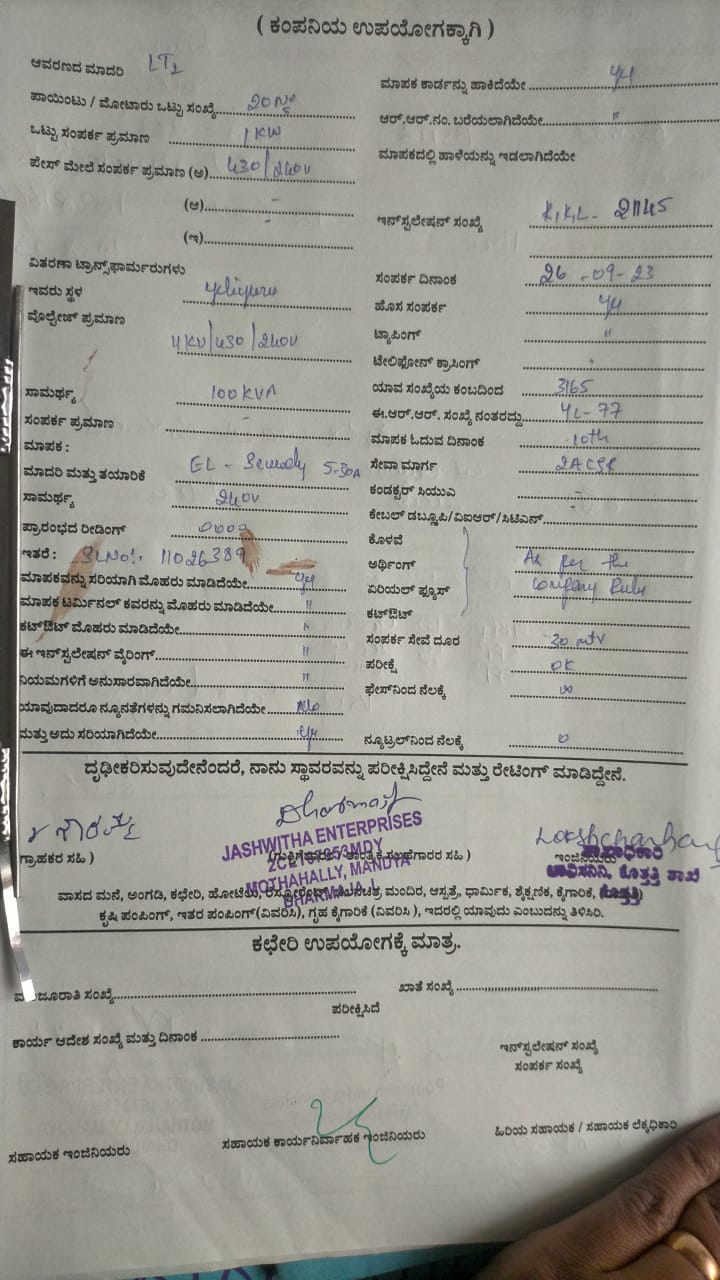 ( ಕಂಪನಿಯ ಉಪಯೋಗಕ್ಕಾಗಿ )
ಆವರಣದ ಮಾದರಿ LT2
ಪಾಯಿಂಟು / ಮೋಟಾರು ಒಟ್ಟು ಸಂಖ್ಯೆ
ಒಟ್ಟು ಸಂಪರ್ಕ ಪ್ರಮಾಣ 1 KW
ಪೇಸ್ ಮೇಲೆ ಸಂಪರ್ಕ ಪ್ರಮಾಣ (ಅ) 430/240V
(ಆ) -
(ಇ) -
ವಿತರಣಾ ಟ್ರಾನ್ಸ್‌ಫಾರ್ಮರುಗಳು
ಇವರು ಸ್ಥಳ
ವೋಲ್ಟೇಜ್ ಪ್ರಮಾಣ
11KV/430/240V
ಸಾಮರ್ಥ್ಯ 100KVA
ಸಂಪರ್ಕ ಪ್ರಮಾಣ -
ಮಾಪಕ :
ಮಾದರಿ ಮತ್ತು ತಯಾರಿಕೆ 5-30A
ಸಾಮರ್ಥ್ಯ 240V
ಪ್ರಾರಂಭದ ರೀಡಿಂಗ್ 0000
ಇತರೆ : SLNo:- 11026389
ಮಾಪಕವನ್ನು ಸರಿಯಾಗಿ ಮೊಹರು ಮಾಡಿದೆಯೇ
ಮಾಪಕ ಟರ್ಮಿನಲ್ ಕವರನ್ನು ಮೊಹರು ಮಾಡಿದೆಯೇ "
ಕಟ್‌ಔಟ್ ಮೊಹರು ಮಾಡಿದೆಯೇ "
ಈ ಇನ್‌ಸ್ಟಲೇಷನ್ ವೈರಿಂಗ್ "
ನಿಯಮಗಳಿಗೆ ಅನುಸಾರವಾಗಿದೆಯೇ "
ಯಾವುದಾದರೂ ನ್ಯೂನತೆಗಳನ್ನು ಗಮನಿಸಲಾಗಿದೆಯೇ No
ಮತ್ತು ಅದು ಸರಿಯಾಗಿದೆಯೇ
ಮಾಪಕ ಕಾರ್ಡನ್ನು ಹಾಕಿದೆಯೇ
ಆರ್.ಆರ್.ನಂ. ಬರೆಯಲಾಗಿದೆಯೇ "
ಮಾಪಕದಲ್ಲಿ ಹಾಳೆಯನ್ನು ಇಡಲಾಗಿದೆಯೇ
ಇನ್‌ಸ್ಟಲೇಷನ್ ಸಂಖ್ಯೆ
ಸಂಪರ್ಕ ದಿನಾಂಕ 26-09-23
ಹೊಸ ಸಂಪರ್ಕ
ಟ್ಯಾಪಿಂಗ್ "
ಟೇಲಿಫೋನ್ ಕ್ರಾಸಿಂಗ್
ಯಾವ ಸಂಖ್ಯೆಯ ಕಂಬದಿಂದ 3165
ಈ.ಆರ್.ಆರ್. ಸಂಖ್ಯೆ ನಂತರದ್ದು YL-77
ಮಾಪಕ ಓದುವ ದಿನಾಂಕ 10th
ಸೇವಾ ಮಾರ್ಗ
ಕಂಡಕ್ಟರ್ ಸಿಯುಎ -
ಕೇಬಲ್ ಡಬ್ಲೂಪಿ/ವಿಐಆರ್/ಸಿಟಿಎನ್ -
ಕೊಳವೆ
ಅರ್ಥಿಂಗ್ As per the
ಏರಿಯಲ್ ಫ್ಯೂಸ್ Company Rule
ಕಟ್‌ಔಟ್
ಸಂಪರ್ಕ ಸೇವೆ ದೂರ 30 mtr
ಪರೀಕ್ಷೆ OK
ಫೇಸ್‌ನಿಂದ ನೆಲಕ್ಕೆ ∞
ನ್ಯೂಟ್ರಲ್‌ನಿಂದ ನೆಲಕ್ಕೆ 0
ದೃಢೀಕರಿಸುವುದೇನೆಂದರೆ, ನಾನು ಸ್ಥಾವರವನ್ನು ಪರೀಕ್ಷಿಸಿದ್ದೇನೆ ಮತ್ತು ರೇಟಿಂಗ್ ಮಾಡಿದ್ದೇನೆ.
JASHWITHA ENTERPRISES
MOTHAHALLY, MANDYA
ಗ್ರಾಹಕರ ಸಹಿ )
ಶಾಖಾಧಿಕಾರಿ
ಚಾವಿಸನಿನಿ, ಕೊತ್ತತ್ತಿ ಶಾಖೆ
ಕೊತ್ತತ್ತಿ
ವಾಸದ ಮನೆ, ಅಂಗಡಿ, ಕಛೇರಿ, ಹೋಟೆಲು, ಮಂದಿರ, ಆಸ್ಪತ್ರೆ, ಧಾರ್ಮಿಕ, ಶೈಕ್ಷಣಿಕ, ಕೈಗಾರಿಕೆ,
ಕೃಷಿ ಪಂಪಿಂಗ್, ಇತರ ಪಂಪಿಂಗ್(ವಿವರಿಸಿ), ಗೃಹ ಕೈಗಾರಿಕೆ (ವಿವರಿಸಿ ), ಇದರಲ್ಲಿ ಯಾವುದು ಎಂಬುದನ್ನು ತಿಳಿಸಿರಿ.
ಕಛೇರಿ ಉಪಯೋಗಕ್ಕೆ ಮಾತ್ರ.
ಸಂಖ್ಯೆ
ಖಾತೆ ಸಂಖ್ಯೆ
ಪರೀಕ್ಷಿಸಿದೆ
ಕಾರ್ಯ ಆದೇಶ ಸಂಖ್ಯೆ ಮತ್ತು ದಿನಾಂಕ
ಇನ್‌ಸ್ಟಲೇಷನ್ ಸಂಖ್ಯೆ
ಸಂಪರ್ಕ ಸಂಖ್ಯೆ
ಸಹಾಯಕ ಇಂಜಿನಿಯರು
ಸಹಾಯಕ ಕಾರ್ಯನಿರ್ವಾಹಕ ಇಂಜಿನಿಯರು
ಹಿರಿಯ ಸಹಾಯಕ / ಸಹಾಯಕ ಲೆಕ್ಕಧಿಕಾರಿ